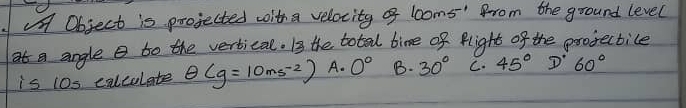 A Object is projected with a velocity of 100ms⁻' from the ground level
at a angle θ to the vertical. If the total time of flight of the projectile
is 10s calculate θ (g = 10ms⁻²) A. 0° B. 30° C. 45° D. 60°